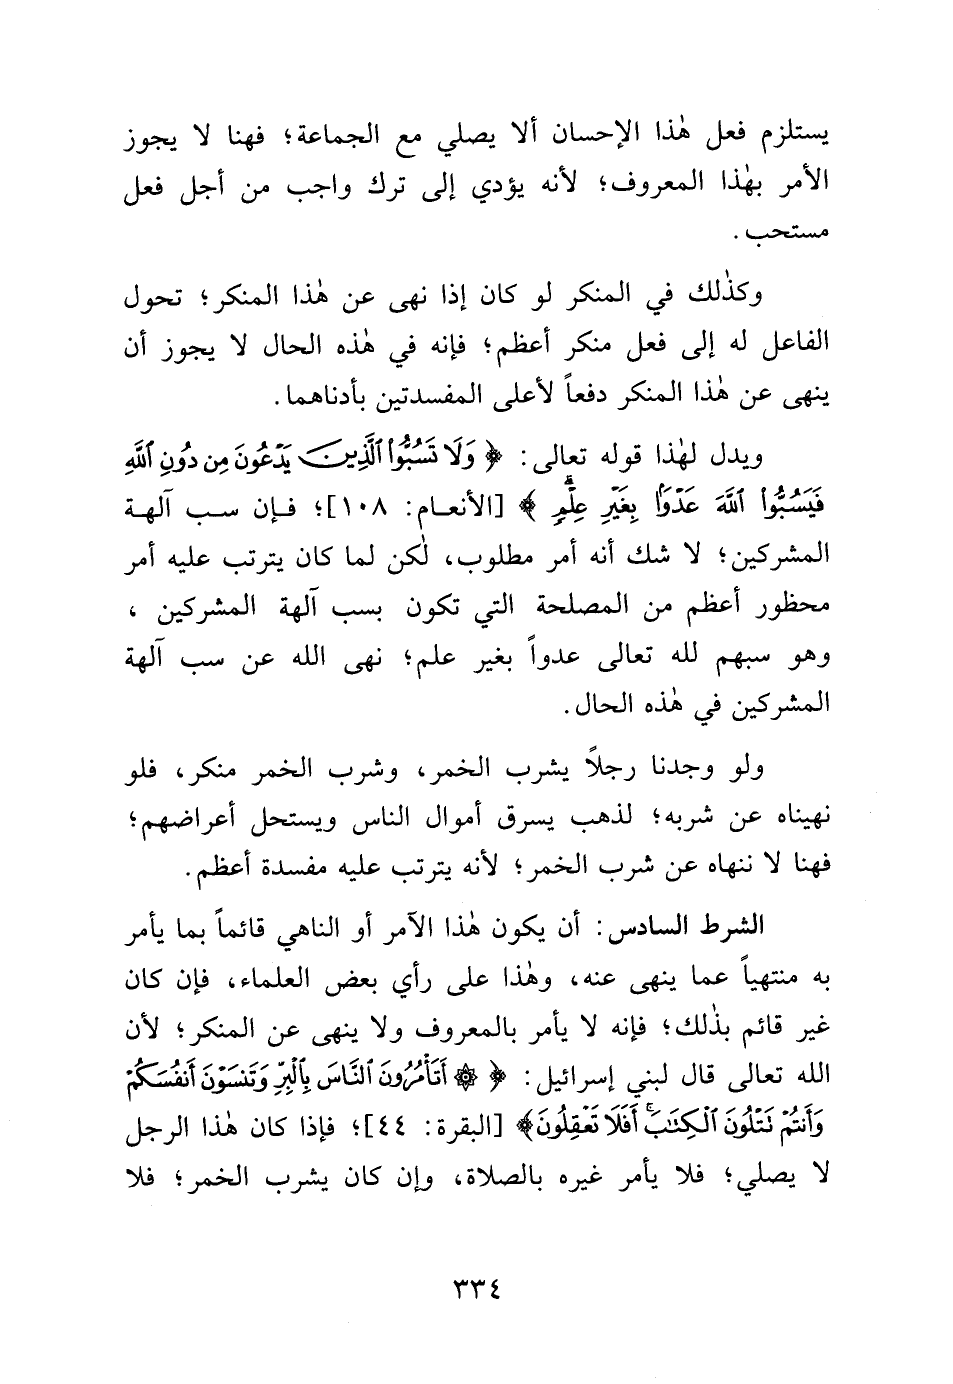 يستلزم فعل هٰذا الإحسان ألا يصلي مع الجماعة؛ فهنا لا يجوز
الأمر بهٰذا المعروف؛ لأنه يؤدي إلى ترك واجب من أجل فعل
مستحب.
وكذٰلك في المنكر لو كان إذا نهى عن هٰذا المنكر؛ تحول
الفاعل له إلى فعل منكر أعظم؛ فإنه في هٰذه الحال لا يجوز أن
ينهى عن هٰذا المنكر دفعاً لأعلى المفسدتين بأدناهما.
ويدل لهٰذا قوله تعالى: ﴿ وَلَا تَسُبُّوا۟ ٱلَّذِينَ يَدْعُونَ مِن دُونِ ٱللَّهِ
فَيَسُبُّوا۟ ٱللَّهَ عَدْوًۢا بِغَيْرِ عِلْمٍۗ ﴾ [الأنعام: ١٠٨]؛ فإن سب آلهة
المشركين؛ لا شك أنه أمر مطلوب، لٰكن لما كان يترتب عليه أمر
محظور أعظم من المصلحة التي تكون بسب آلهة المشركين ،
وهو سبهم لله تعالى عدواً بغير علم؛ نهى الله عن سب آلهة
المشركين في هٰذه الحال.
ولو وجدنا رجلاً يشرب الخمر، وشرب الخمر منكر، فلو
نهيناه عن شربه؛ لذهب يسرق أموال الناس ويستحل أعراضهم؛
فهنا لا ننهاه عن شرب الخمر؛ لأنه يترتب عليه مفسدة أعظم.
الشرط السادس: أن يكون هٰذا الآمر أو الناهي قائماً بما يأمر
به منتهياً عما ينهى عنه، وهٰذا على رأي بعض العلماء، فإن كان
غير قائم بذٰلك؛ فإنه لا يأمر بالمعروف ولا ينهى عن المنكر؛ لأن
الله تعالى قال لبني إسرائيل: ﴿ ۞ أَتَأْمُرُونَ ٱلنَّاسَ بِٱلْبِرِّ وَتَنسَوْنَ أَنفُسَكُمْ
وَأَنتُمْ نَتْلُونَ ٱلْكِتَٰبَۚ أَفَلَا تَعْقِلُونَ﴾ [البقرة: ٤٤]؛ فإذا كان هٰذا الرجل
لا يصلي؛ فلا يأمر غيره بالصلاة، وإن كان يشرب الخمر؛ فلا
٣٣٤